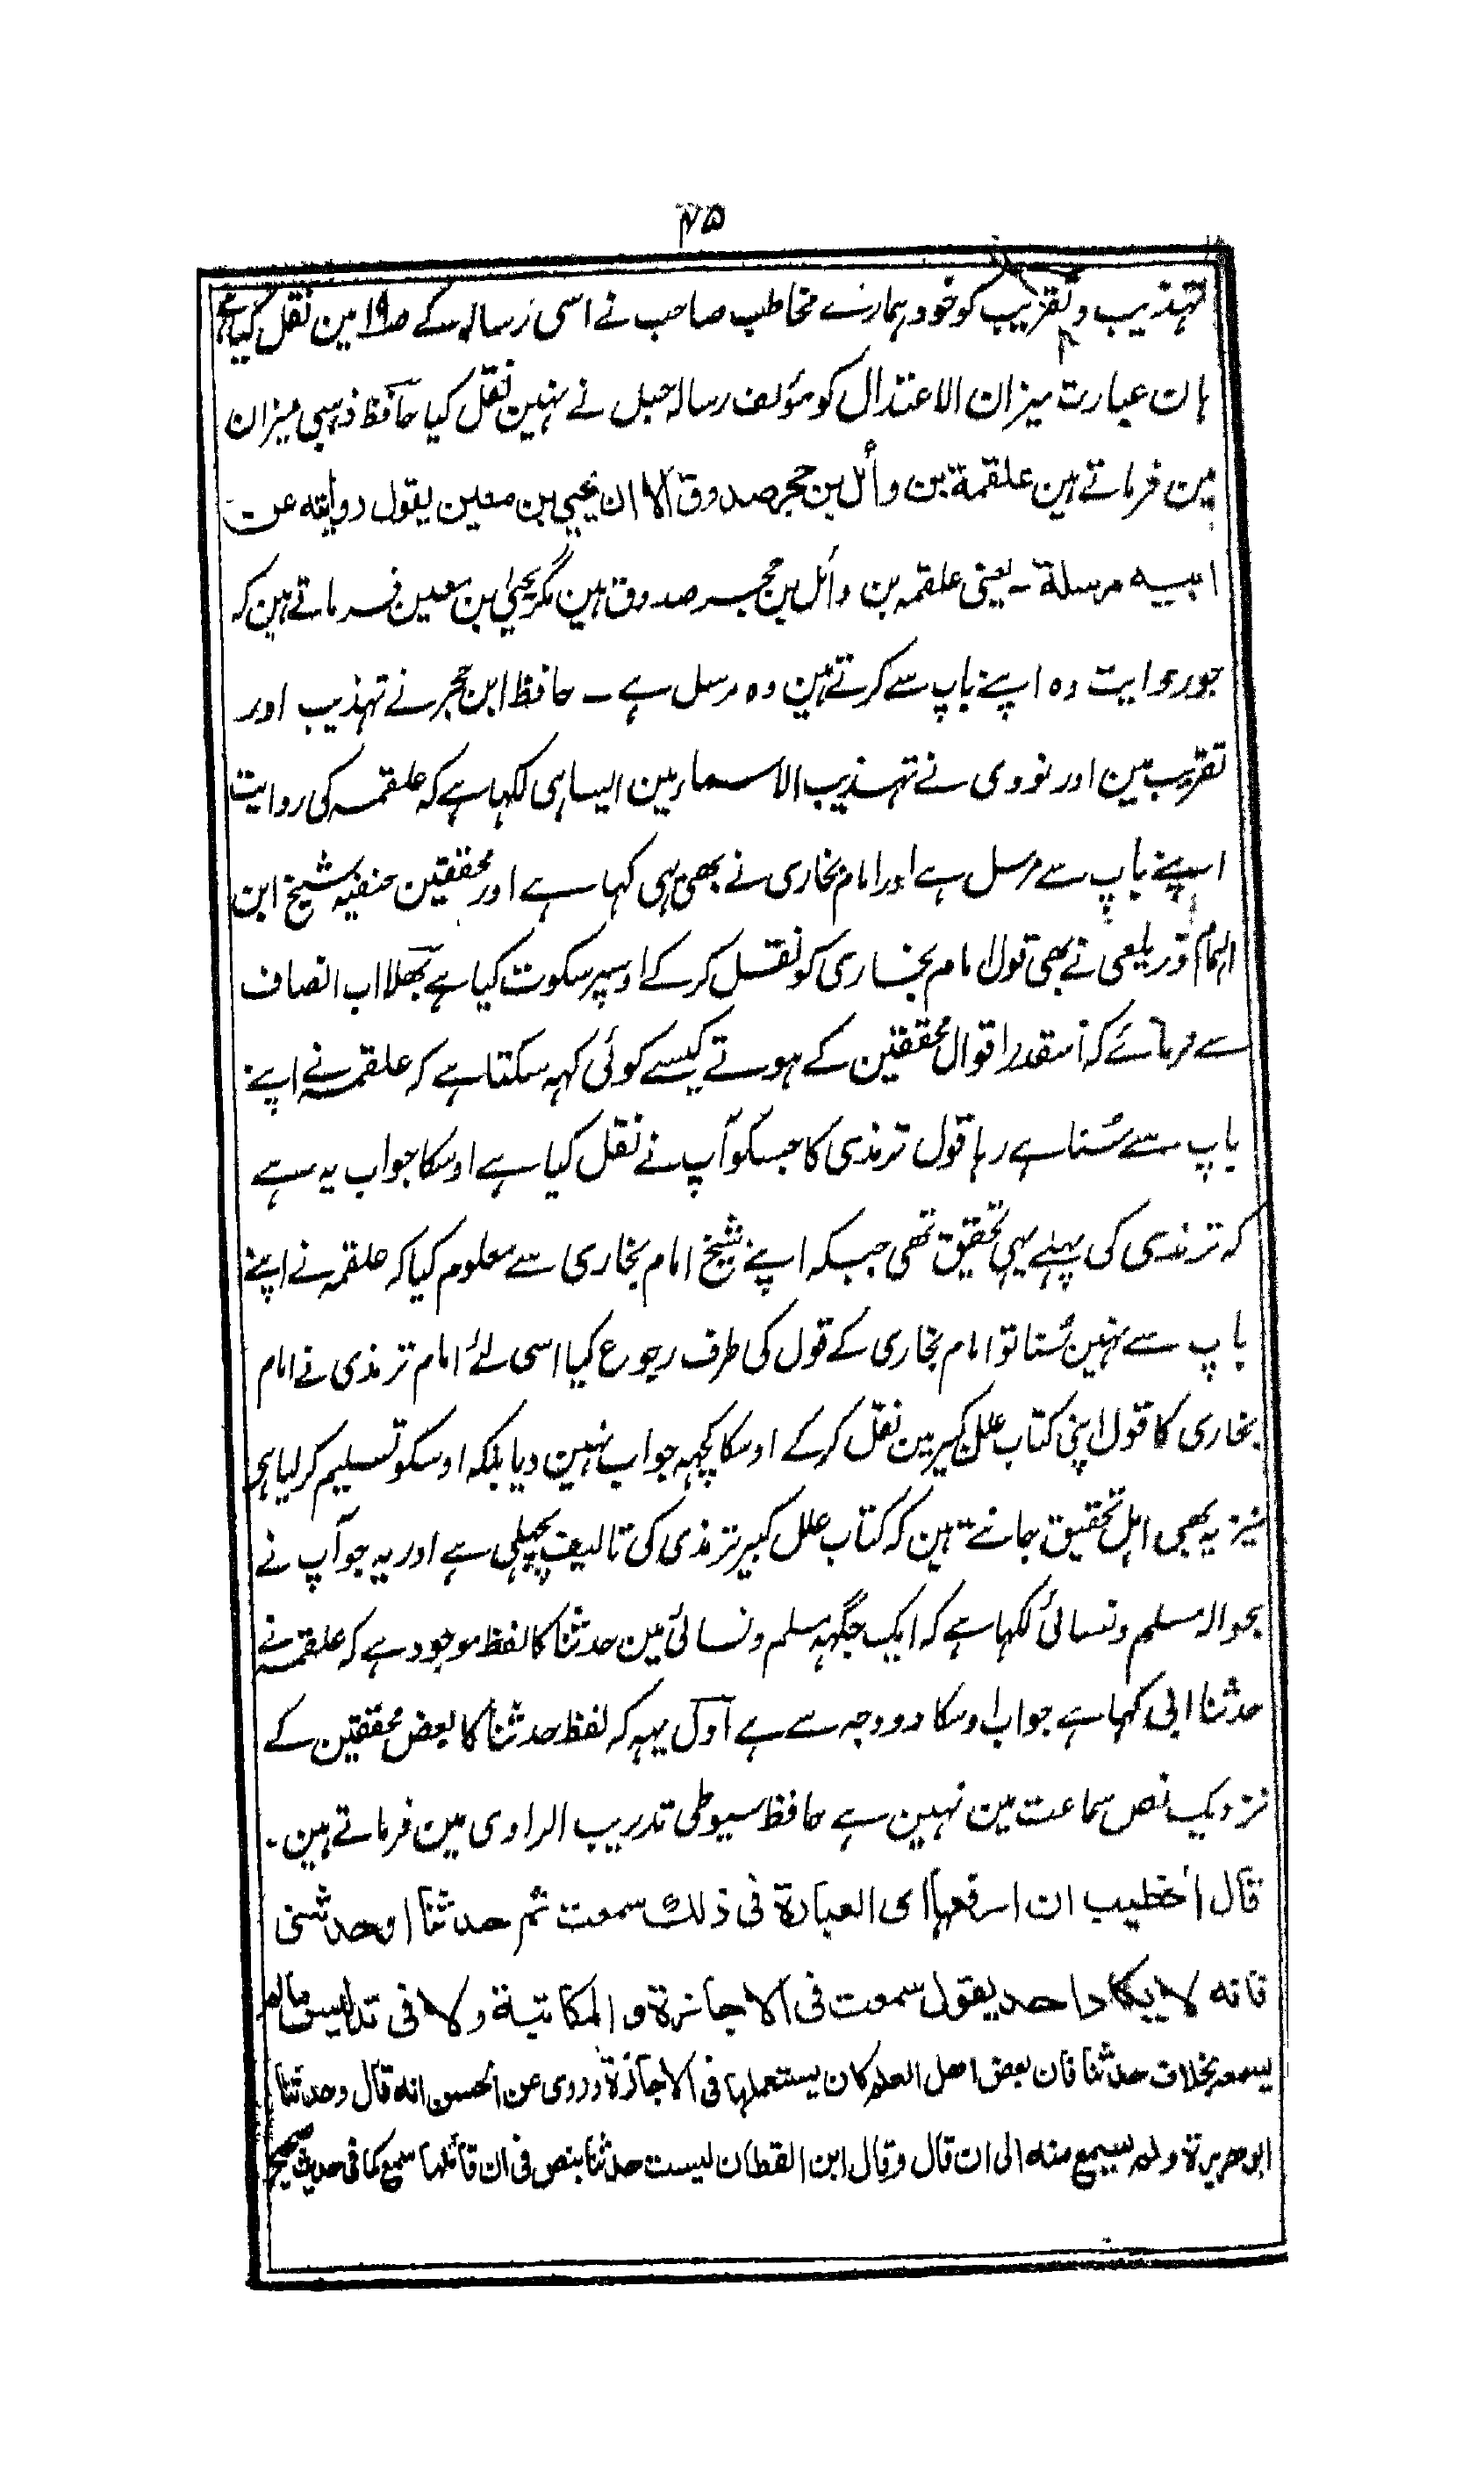 ۴۵
تہذیب و تقریب کو خود ہمارے مخاطب صاحب نے اسی رسالہ کے صـ۱۹ مین نقل کیا ہے
ہان عبارت میزان الاعتدال کو مؤلف رسالہ حبل نے نہین نقل کیا حافظ ذہبی میزان
مین فرماتے ہین علقمة بن وائل بن حجر صدوق الا ان یحیی بن معین یقول روایته عن
ابیه مرسلة ۔ یعنی علقمہ بن وائل بن حجر صدوق ہین مگر یحیٰی بن معین فرماتے ہین کہ
جو روایت وہ اپنے باپ سے کرتے ہین وہ مرسل ہے ۔ حافظ ابن حجر نے تہذیب اور
تقریب مین اور نووی نے تہذیب الاسماء مین ایسا ہی لکہا ہے کہ علقمہ کی روایت
اپنے باپ سے مرسل ہے اور امام بخاری نے بھی یہی کہا ہے اور محققین حنفیہ شیخ ابن
الہمام و زیلعی نے بھی قول امام بخاری کو نقل کرکے اوسپر سکوت کیا ہے بھلا اب انصاف
سے فرمائے کہ اسقدر اقوال محققین کے ہوتے کیسے کوئی کہہ سکتا ہے کہ علقمہ نے اپنے
باپ سے سُنا ہے رہا قول ترمذی کا جسکو آپ نے نقل کیا ہے اوسکا جواب یہ ہے
کہ ترمذی کی پہلے یہی تحقیق تھی جبکہ اپنے شیخ امام بخاری سے معلوم کیا کہ علقمہ نے اپنے
باپ سے نہین سُنا تو امام بخاری کے قول کی طرف رجوع کیا اسی لئے امام ترمذی نے امام
بخاری کا قول اپنی کتاب علل کبیر مین نقل کرکے اوسکا کچہہ جواب نہین دیا بلکہ اوسکو تسلیم کرلیا ہی
نیز یہ بھی اہل تحقیق جانتے ہین کہ کتاب علل کبیر ترمذی کی تالیف پچھلی ہے اور یہ جو آپ نے
بحوالہ مسلم و نسائی لکہا ہے کہ ایک جگہہ مسلم و نسائی مین حدثنا کا لفظ موجود ہے کہ علقمہ نے
حدثنا ابی کہا ہے جواب اوسکا دو وجہ سے ہے اول یہہ کہ لفظ حدثنا کا بعض محققین کے
نزدیک نص سماعت مین نہین ہے حافظ سیوطی تدریب الراوی مین فرماتے ہین ۔
قال الخطیب ان ارفعها ای العبارة فی ذلك سمعت ثم حدثنا او حدثنی
فانه لا یکاد احد یقول سمعت فی الاجازة و المکاتبة ولا فی تدلیس مالم
یسمعه بخلاف حدثنا فان بعض اهل العلم کان یستعملها فی الاجازة و روی عن الحسن انه قال وحدثنا
ابو هریرة ولم یسمع منه الی ان قال و قال ابن القطان لیست حدثنا بنص فی ان قائلها سمع کما فی حدیث صحیح